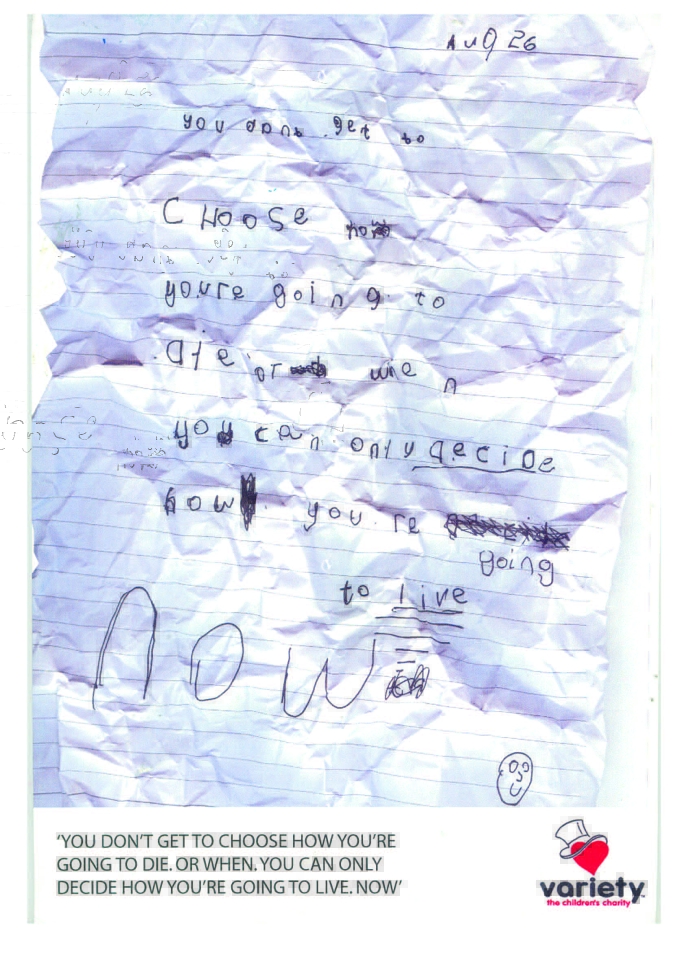 AUG 26
you dont get to
CHOOSE how
you're going to
die or when
you can only decide
how you're
going
to live
now
'YOU DON'T GET TO CHOOSE HOW YOU'RE
GOING TO DIE. OR WHEN. YOU CAN ONLY
DECIDE HOW YOU'RE GOING TO LIVE. NOW'
variety
the children's charity